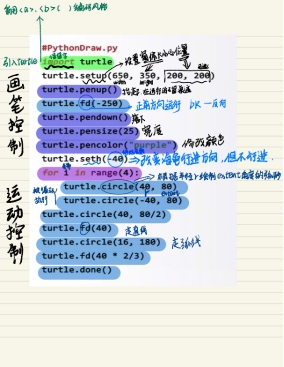 #PythonDraw.py
引入turtle
import turtle
turtle.setup(650, 350, 200, 200)
turtle.penup()
turtle.fd(-250)
turtle.pendown()
turtle.pensize(25) 宽度
turtle.pencolor("purple") 修改颜色
turtle.seth(-40) 改变海龟行进方向，但不行进
for i in range(4):
turtle.circle(40, 80)
turtle.circle(-40, 80)
turtle.circle(40, 80/2)
turtle.fd(40) 走直线
turtle.circle(16, 180) 走弧线
turtle.fd(40 * 2/3)
turtle.done()
画笔控制
运动控制